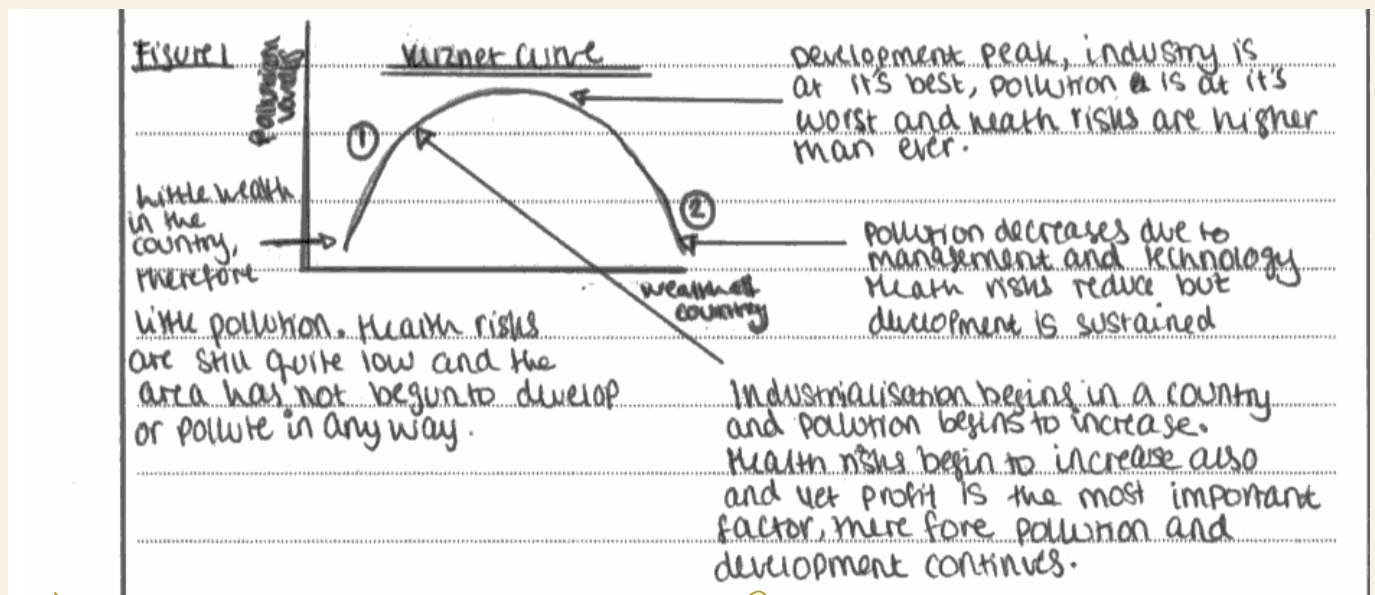 Figure 1
Pollution
levels
Kuznet Curve
Development peak, industry is
at it's best, pollution is at it's
worst and heath risks are higher
than ever.
①
Little wealth
in the
country,
therefore
little pollution. Health risks
are still quite low and the
area has not begun to develop
or pollute in any way.
②
Pollution decreases due to
management and technology
Heath risks reduce but
development is sustained
wealth of
country
Industrialisation begins in a country
and pollution begins to increase.
Health risks begin to increase also
and yet profit is the most important
factor, there fore pollution and
development continues.